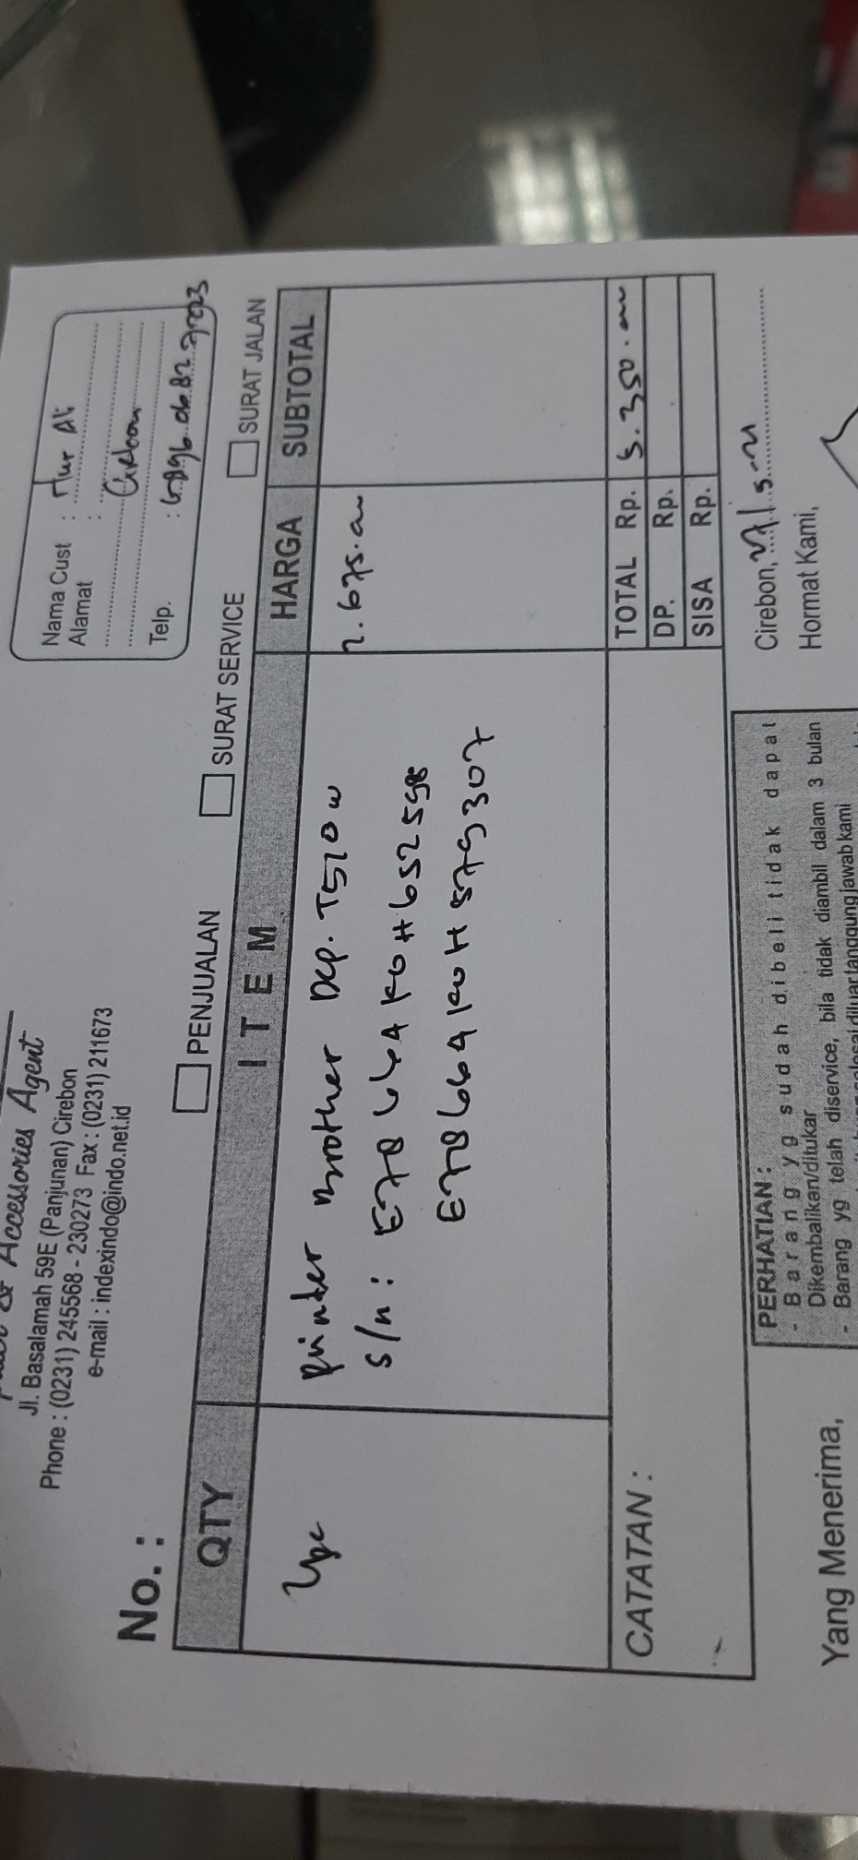 & Accessories Agent
Jl. Basalamah 59E (Panjunan) Cirebon
Phone : (0231) 245568 - 230273 Fax : (0231) 211673
e-mail : indexindo@indo.net.id
Nama Cust : Nur
Alamat :
Cirebon
Telp. :
No. :
PENJUALAN SURAT SERVICE SURAT JALAN
QTY ITEM HARGA SUBTOTAL
2pc Printer Brother Dcp. T510w 2.675.000
s/n : E78664K0H652598
E78664K0H579307
CATATAN :
TOTAL Rp. 5.350.000
DP. Rp.
SISA Rp.
PERHATIAN :
- Barang yg sudah dibeli tidak dapat
Dikembalikan/ditukar
- Barang yg telah diservice, bila tidak diambil dalam 3 bulan
diluar tanggung jawab kami
Cirebon,
Hormat Kami,
Yang Menerima,